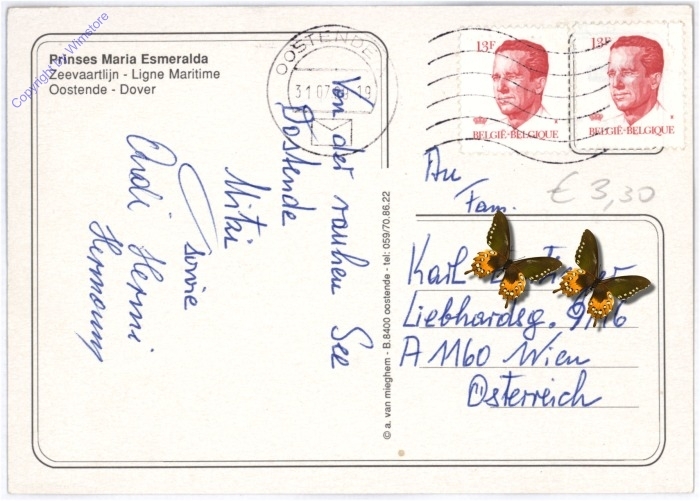 Copyright by Winstore
Prinses Maria Esmeralda
Zeevaartlijn - Ligne Maritime
Oostende - Dover
OOSTENDE
31 07 19
13F
BELGIË-BELGIQUE
13F
BELGIË-BELGIQUE
Von der rauhen See
Oostende
Mitzi
sowie
Andi Hermi
Hermann
© a. van mieghem - B.8400 oostende - tel: 059/70.86.22
An
Fam.
€ 3,30
Karl
Liebhardsg.
A 1160 Wien
Österreich